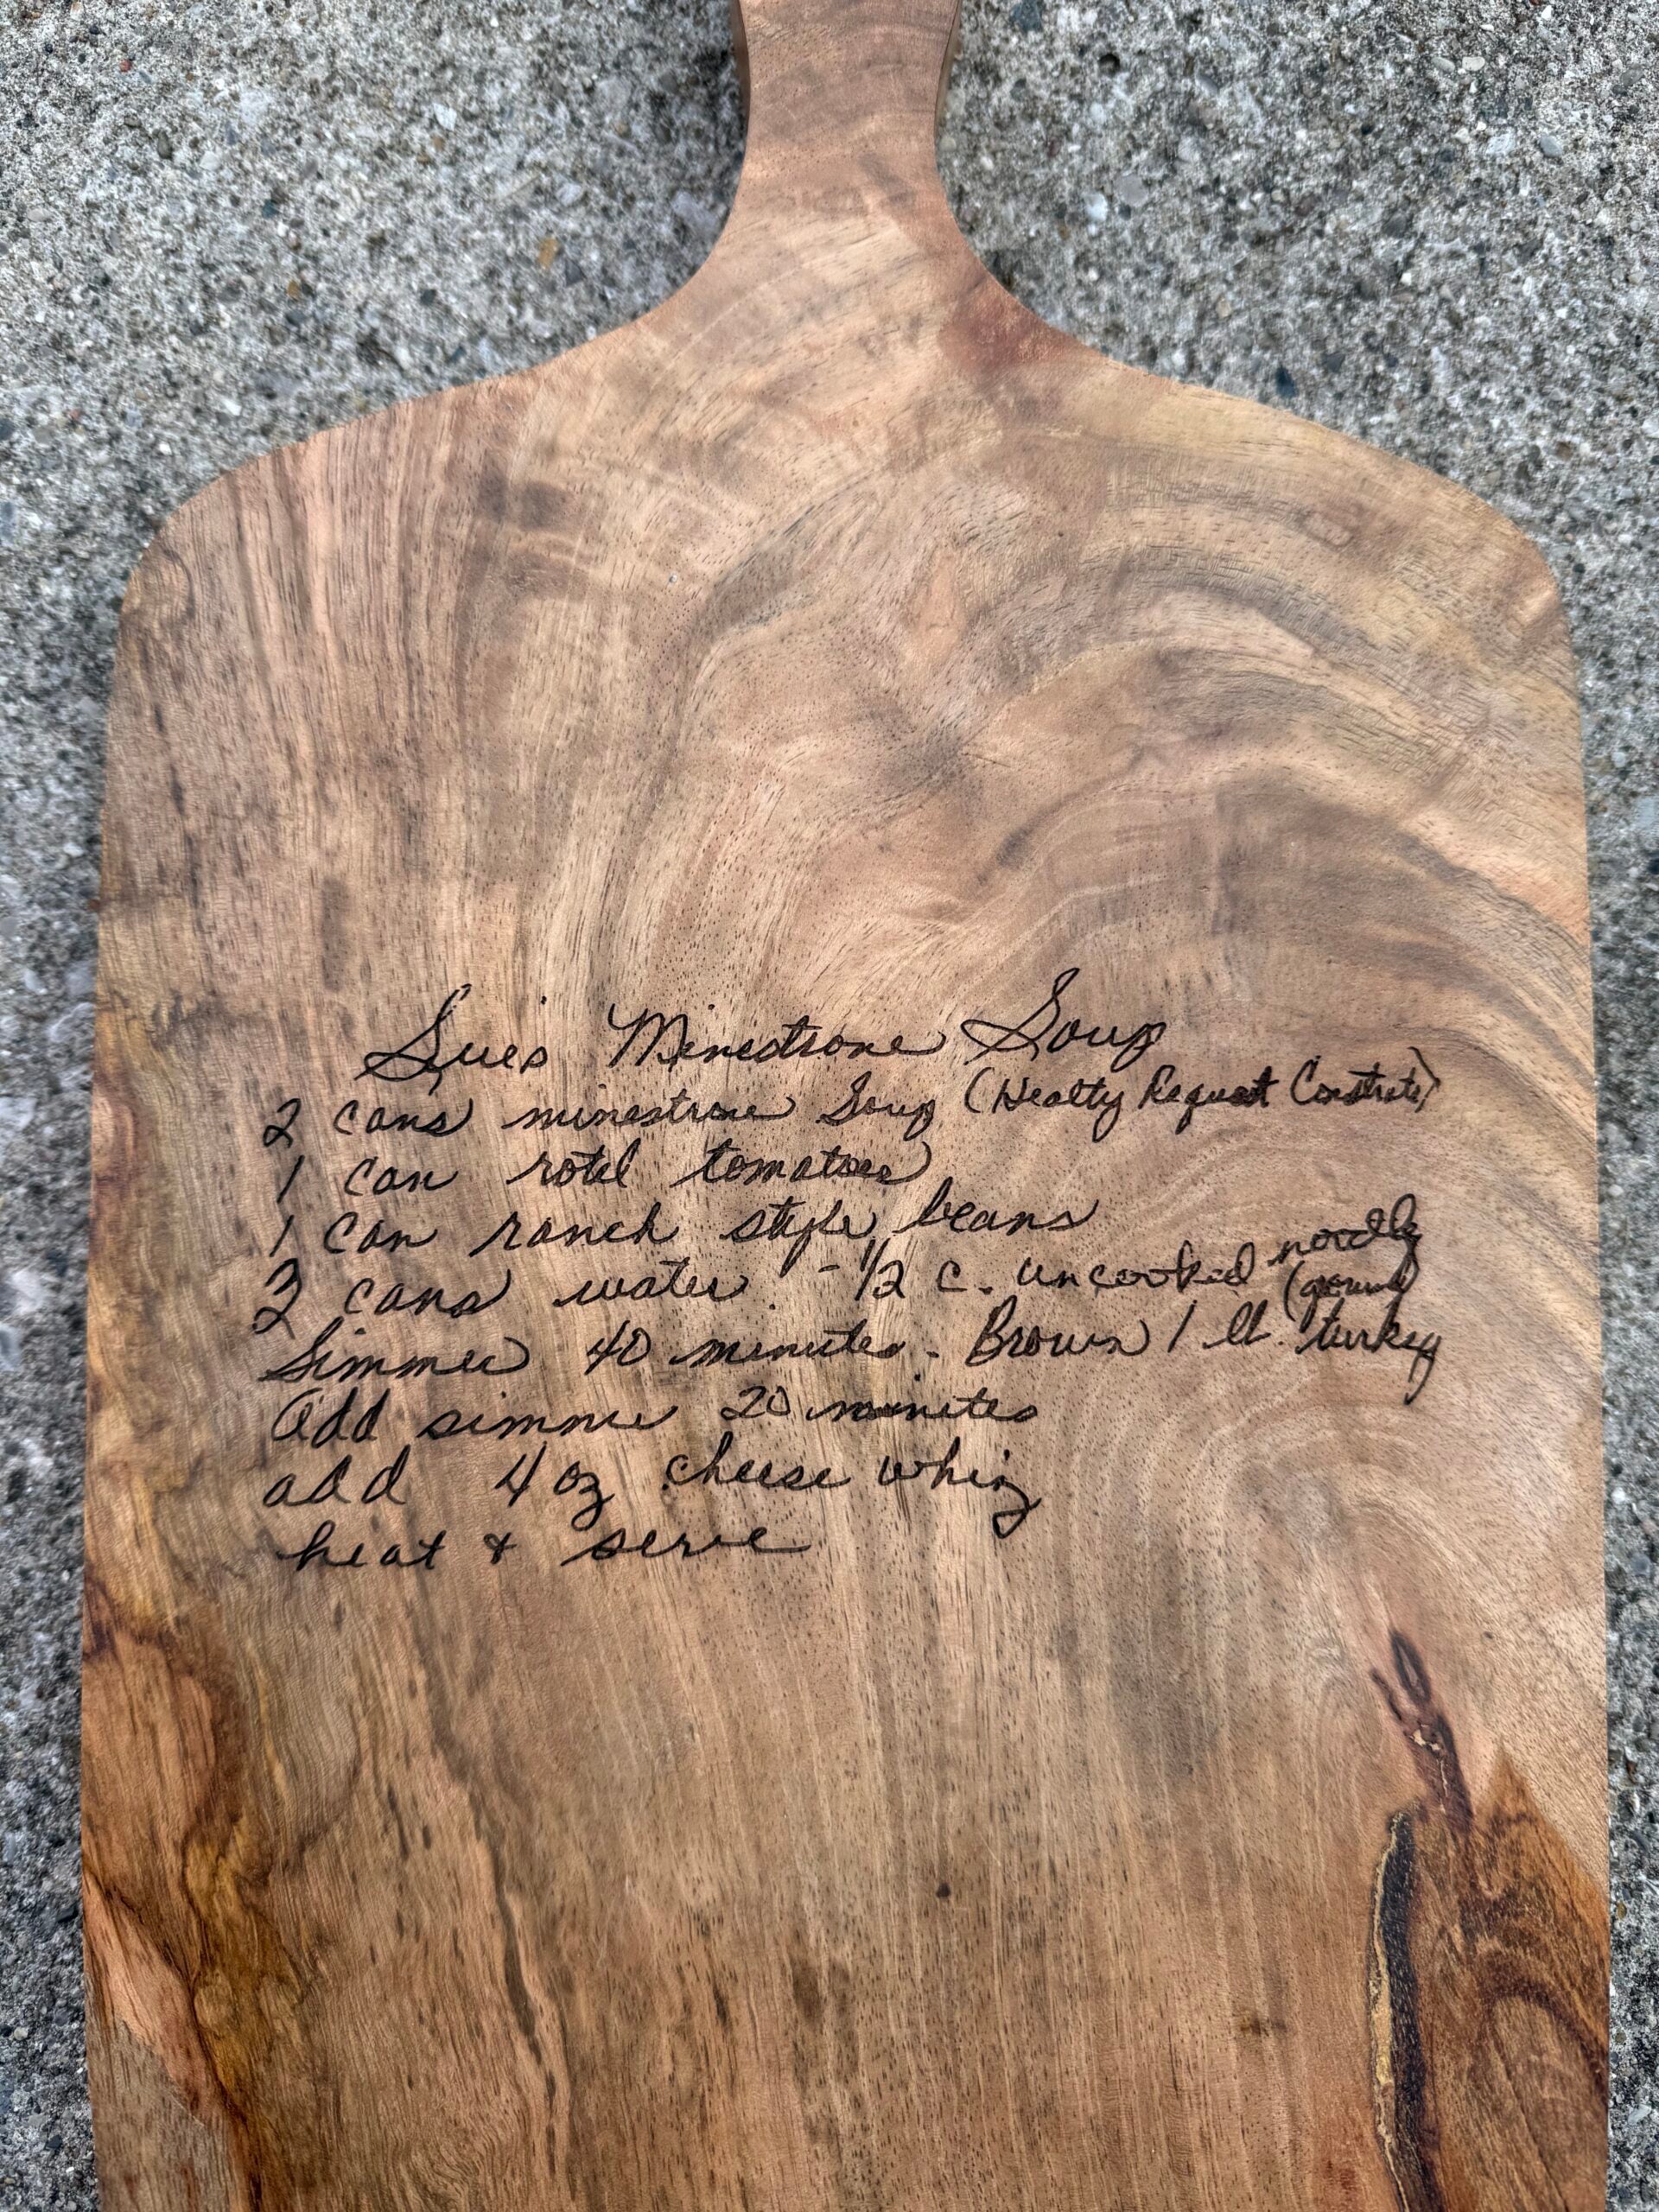 Sue's Minestrone Soup
2 cans minestrone Soup (Healty Request Constrate)
1 can rotel tomatoes
1 can ranch style beans
3 cans water. - 1/2 c. uncooked noodles
Simmer 40 minutes - Brown 1 lb. (ground) turkey
Add simmer 20 minutes
add 4 oz cheese whiz
heat & serve